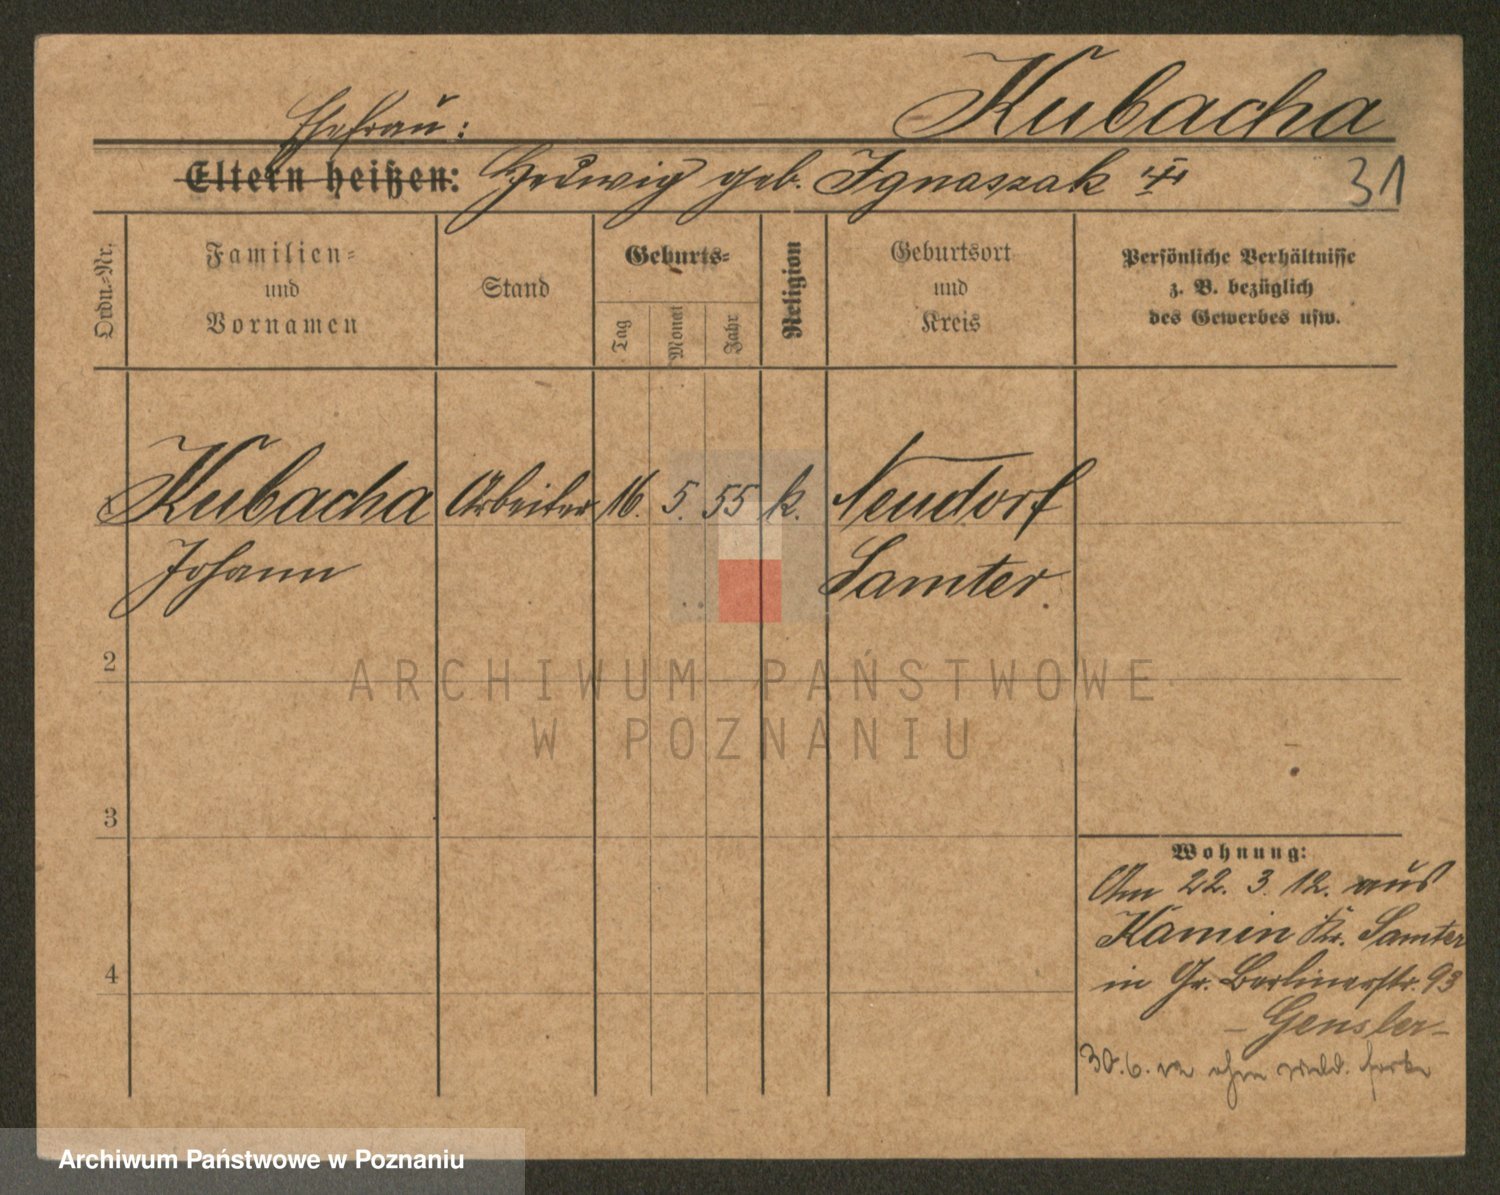 Kubacha
Ehefrau:
Eltern heißen: Hedwig geb. Ignaszak
31
Ordn.-Nr.
Familien-
und
Vornamen
Stand
Geburts-
Tag
Monat
Jahr
Religion
Geburtsort
und
Kreis
Persönliche Verhältnisse
z. B. bezüglich
des Gewerbes usw.
Kubacha Arbeiter 16. 5. 55 k. Neudorf
Johann Samter.
2
ARCHIWUM PAŃSTWOWE
W POZNANIU
3
Wohnung:
Am 22. 3. 12. aus
Kamin Kr. Samter
in Gr. Berlinerstr. 93
4
- Gensler -
30. 6. ohne
Archiwum Państwowe w Poznaniu